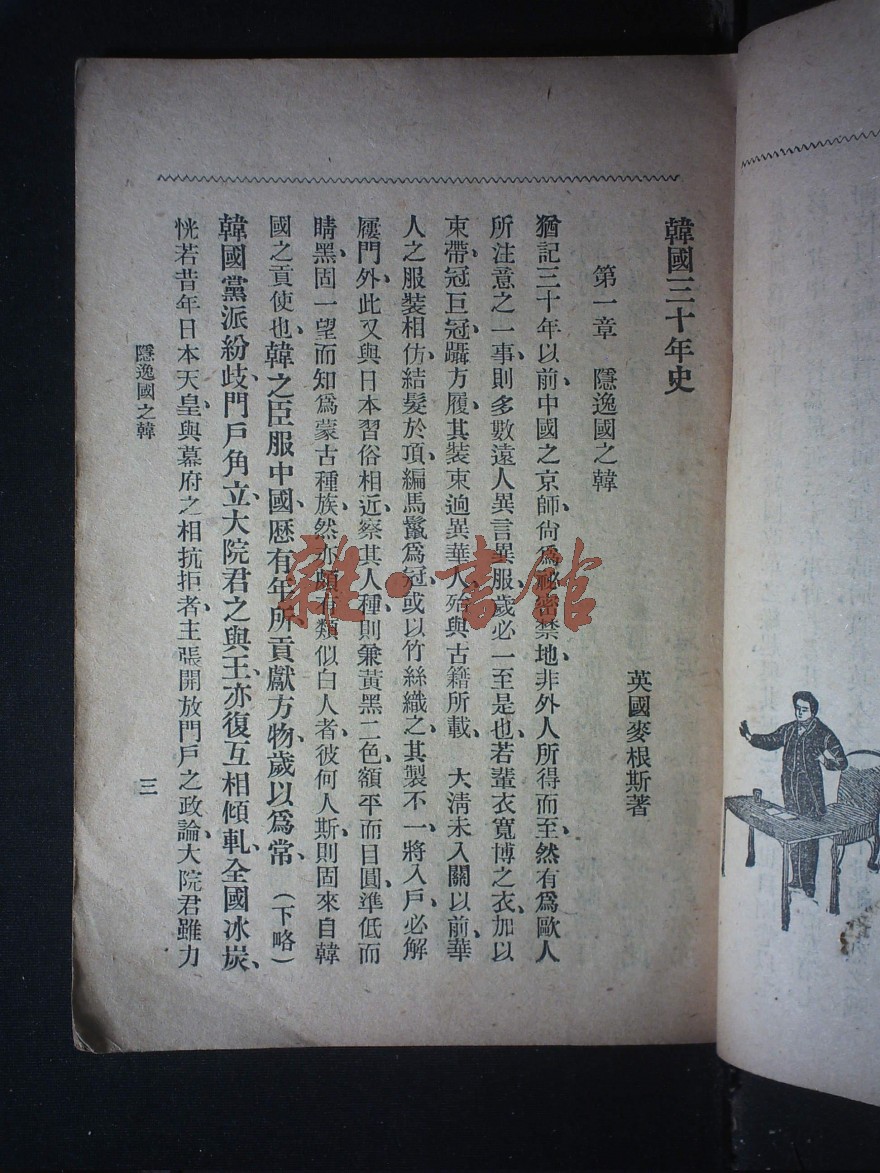 韓國三十年史
英國麥根斯著
第一章　隱逸國之韓
猶記三十年以前、中國之京師、尙爲祕密禁地、非外人所得而至、然有爲歐人
所注意之一事、則多數遠人異言異服、歲必一至是也、若輩衣寬博之衣、加以
束帶、冠巨冠、躡方履、其裝束迥異華人、殆與古籍所載、　大淸未入關以前、華
人之服裝相仿、結髮於頂、編馬鬣爲冠、或以竹絲織之、其製不一、將入戶、必解
屨門外、此又與日本習俗相近、察其人種、則兼黃黑二色、額平而目圓、準低而
睛黑、固一望而知爲蒙古種族、然亦頗有類似白人者、彼何人斯、則固來自韓
國之貢使也、韓之臣服中國、歷有年所、貢獻方物、歲以爲常、（下略）
韓國黨派紛歧、門戶角立、大院君之與王、亦復互相傾軋、全國冰炭、
恍若昔年日本天皇與幕府之相抗拒者、主張開放門戶之政論、大院君雖力
隱逸國之韓
三
雜·書館